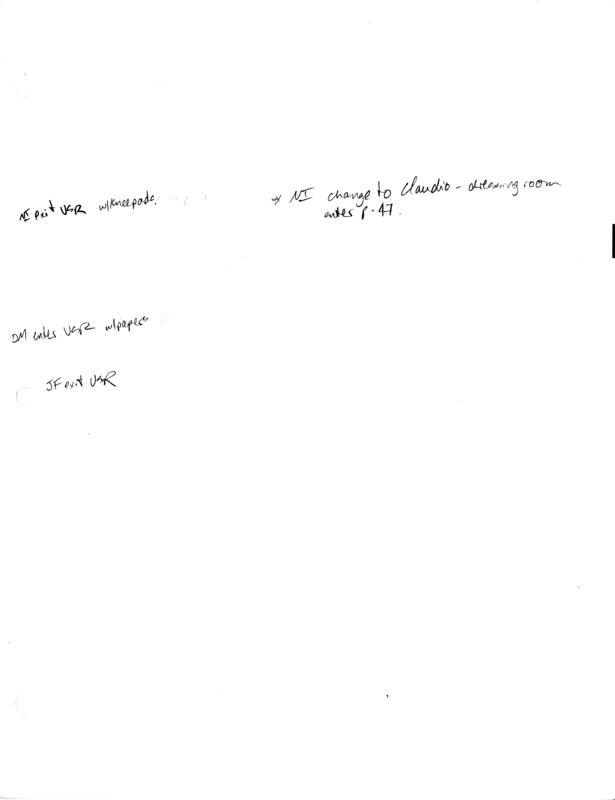 NI exit USR w/kneepads.
→ NI change to Claudio - dressing room
enter p. 47.
DM enter USR w/papers
JF exit USR